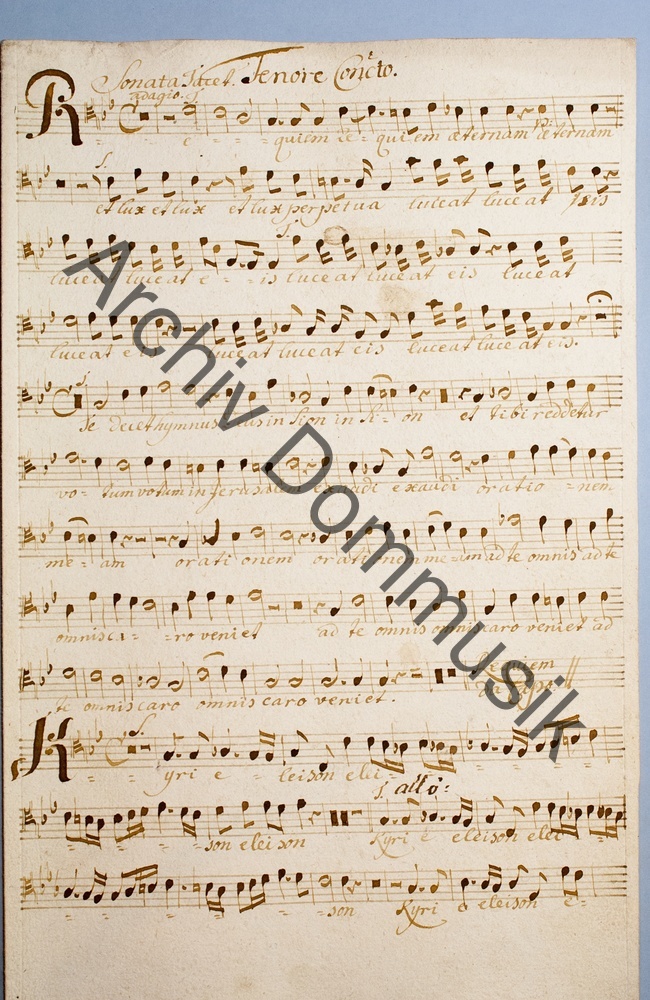 Sonata Tacet. Tenore Conc:to.
adagio. S.
R e - - - quiem re = quiem æternam æternam
S.
et lux et lux et lux perpetua luceat luceat eis
S.
luceat luceat e - - is luceat luceat eis luceat
luceat eis luceat luceat eis luceat luceat eis.
S.
Te decet hymnus Deus in Sion in Si - on et tibi reddetur
vo - tum votum in Jerusalem exaudi exaudi oratio - nem
me - am orati onem orationem me - am ad te omnis ad te
omnis ca - - ro veniet ad te omnis omnis caro veniet ad
te omnis caro omnis caro veniet.
Requiem
da Capo
S.
K yri e - leison elei -
S. allò:
= = = = son eleison Kyri e eleison elei
= = = = = son Kyri e eleison e =
Archiv Dommusik